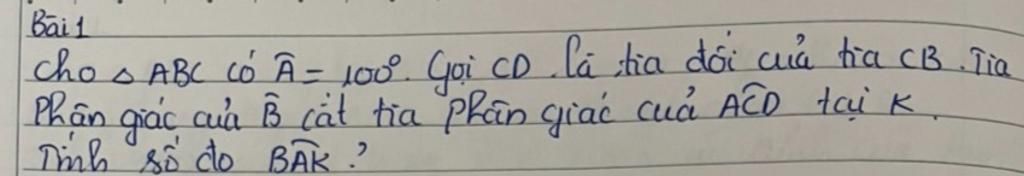 Bài 1
Cho △ ABC có Â = 100°. Gọi CD là tia đối của tia CB. Tia
Phân giác của B̂ cắt tia Phân giác của AĈD tại K.
Tính số đo BÂK ?